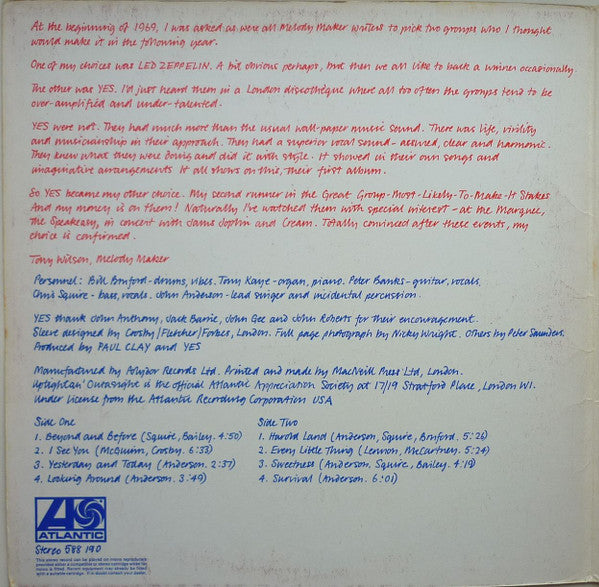 At the beginning of 1969, I was asked as were all Melody Maker writers to pick two groups who I thought
would make it in the following year.
One of my choices was LED ZEPPELIN. A bit obvious perhaps, but then we all like to back a winner occasionally.
The other was YES. I'd just heard them in a London discothèque where all too often the groups tend to be
over-amplified and under-talented.
YES were not. They had much more than the usual wall-paper music sound. There was life, virility
and musicianship in their approach. They had a superior vocal sound - assured, clear and harmonic.
They knew what they were doing and did it with style. It showed in their own songs and
imaginative arrangements It all shows on this, their first album.
So YES became my other choice. My second runner in the Great Group-Most-Likely-To-Make-It Stakes
And my money is on them! Naturally I've watched them with special interest - at the Marquee,
the Speakeasy, in concert with Janis Joplin and Cream. Totally convinced after these events, my
choice is confirmed.
Tony Wilson, Melody Maker
Personnel: Bill Bruford-drums, vibes. Tony Kaye-organ, piano. Peter Banks-guitar, vocals,
Chris Squire - bass, vocals. John Anderson-lead singer and incidental percussion.
YES thank John Anthony, Jack Barrie, John Gee and John Roberts for their encouragement.
Sleeve designed by Crosby/Fletcher/Forbes, London. Full page photograph by Nicky Wright. Others by Peter Saunders.
Produced by PAUL CLAY and YES
Manufactured by Polydor Records Ltd. Printed and made by MacNeill Press Ltd, London.
Uptightan' Outasight is the official Atlantic Appreciation Society at 17/19 Stratford Place, London W1.
Under license from the Atlantic Recording Corporation USA
Side One
1. Beyond and Before (Squire, Bailey. 4:50)
2. I See You (McGuinn, Crosby. 6:33)
3. Yesterday and Today (Anderson. 2:37)
4. Looking Around (Anderson. 3:49)
Side Two
1. Harold Land (Anderson, Squire, Bruford. 5:26)
2. Every Little Thing (Lennon, McCartney. 5:24)
3. Sweetness (Anderson, Squire, Bailey. 4:19)
4. Survival (Anderson. 6:01)
ATLANTIC
Stereo 588 190
This stereo record can be played on mono reproducers
provided either a compatible or stereo cartridge wired for
mono is fitted. Recent equipment may already be fitted
with a suitable cartridge. If in doubt consult your dealer.